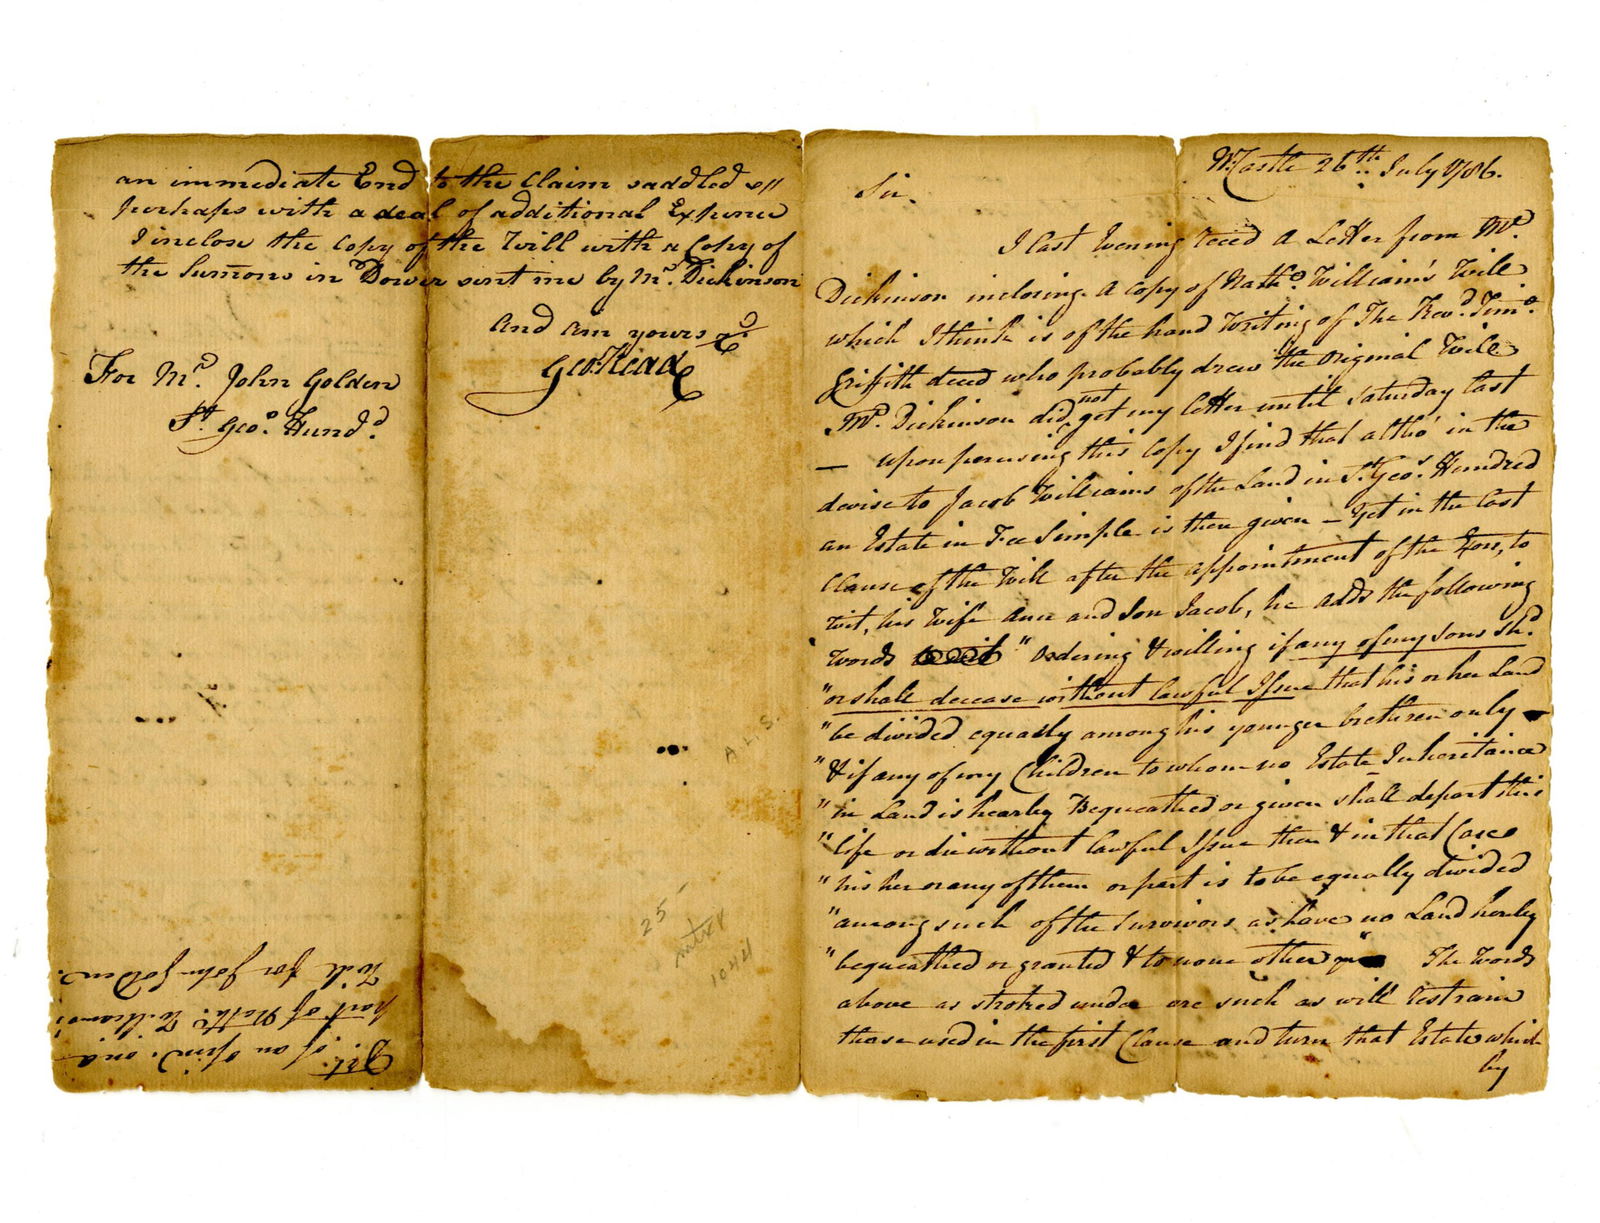 N. Castle 26th July 1786.
Sir,
I last Evening reced a Letter from Mr.
Dickinson inclosing a Copy of Nathl. William's Will
which I think is of the hand Writing of The Revd. Timo.
Griffith deced who probably drew the Original Will
Mr. Dickinson did not get my letter until Saturday last
— upon perusing this Copy I find that altho' in the
devise to Jacob Williams of the Land in St. Geos. Hundred
an Estate in Fee Simple is then given – Yet in the last
Clause of the Will after the appointment of the Exors, to
wit, his Wife Ann and Son Jacob, he adds the following
Words "Ordering & willing if any of my sons shd.
"or shall decease without lawful Issue that his or her Land
"be divided equally among his younger brethren only
"& if any of my Children to whom no Estate Inheritance
"in Land is hearby Bequeathed or given shall depart this
"life or die without lawful Issue then & in that Case
"his her or any of them or part is to be equally divided
"among such of the Survivors as have no Land hereby
"bequeathed or granted & to none other The Words
above as stroked under are such as will restrain
those used in the first Clause and turn that Estate which
by
an immediate End to the Claim saddled
perhaps with a deal of additional Expence
I inclose the Copy of the Will with a Copy of
the Sumons in Dower sent me by Mr. Dickinson
and am yours &c
Geo: Read
For Mr. John Golden
St. Geo. Hund.
of an
part of Nathl. Williams's
Will for John Golden.
A. L. S.
25
1044